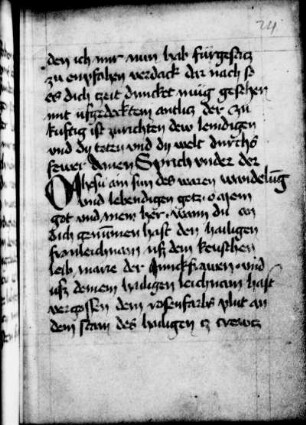 24
den ich mir nun hab fürgesatz
zu enpfahen verdackt dar nach so
es dich zeit duncket müg gesehen
mit ufgedecktem antlitz der zů
kuftig ist zurichten dew lemdigen
und dy toten und dy welt durchs
fewer Amen Sprich under der
O ihesu ain sun des waren wandelūg
und lebendigen gotz o mein
got und mein her wann du an
dich genummen hast den hailigen
fronleichnam uß dem keuschen
leib marie der Junckfrawen und
uß deinem hailigen leichnam hast
vergossen dein rosenfarbs plut an
dem stam des hailigen cz crewcz